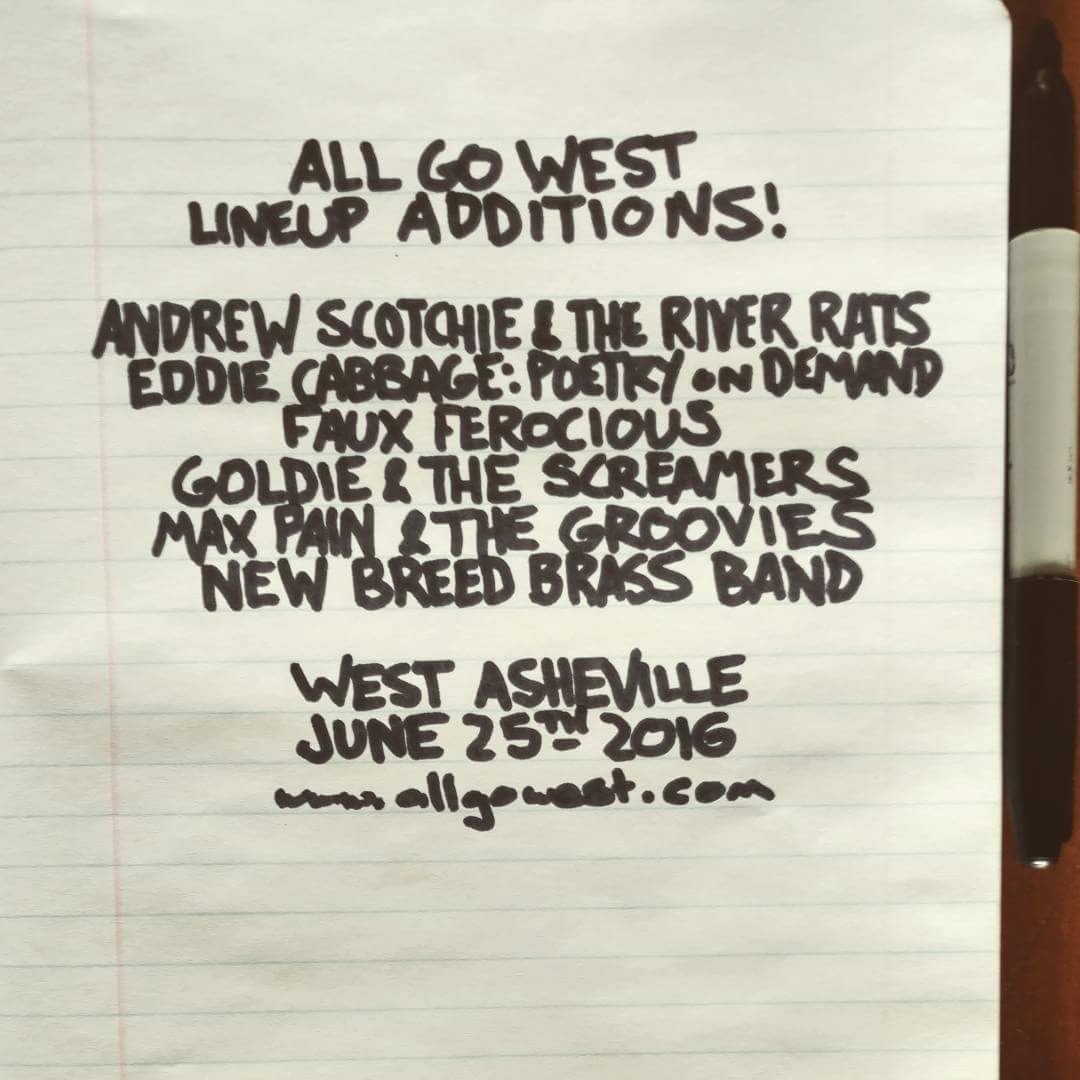 ALL GO WEST
LINEUP ADDITIONS!
ANDREW SCOTCHIE & THE RIVER RATS
EDDIE CABBAGE: POETRY ON DEMAND
FAUX FEROCIOUS
GOLDIE & THE SCREAMERS
MAX PAIN & THE GROOVIES
NEW BREED BRASS BAND
WEST ASHEVILLE
JUNE 25TH 2016
www.allgowest.com